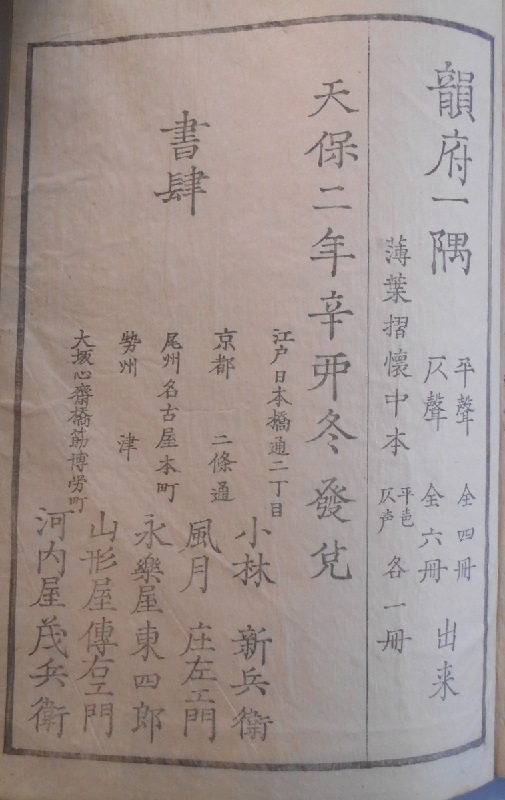 韻府一隅
平聲 全四冊
仄聲 全六冊
出来
薄葉摺懐中本
平声
仄声
各一冊
天保二年辛卯冬發兌
書肆
江戸日本橋通二丁目 小林新兵衛
京都 二條通 風月庄左エ門
尾州名古屋本町 永樂屋東四郎
勢州 津 山形屋傳右エ門
大坂心齋橋筋博労町 河内屋茂兵衛